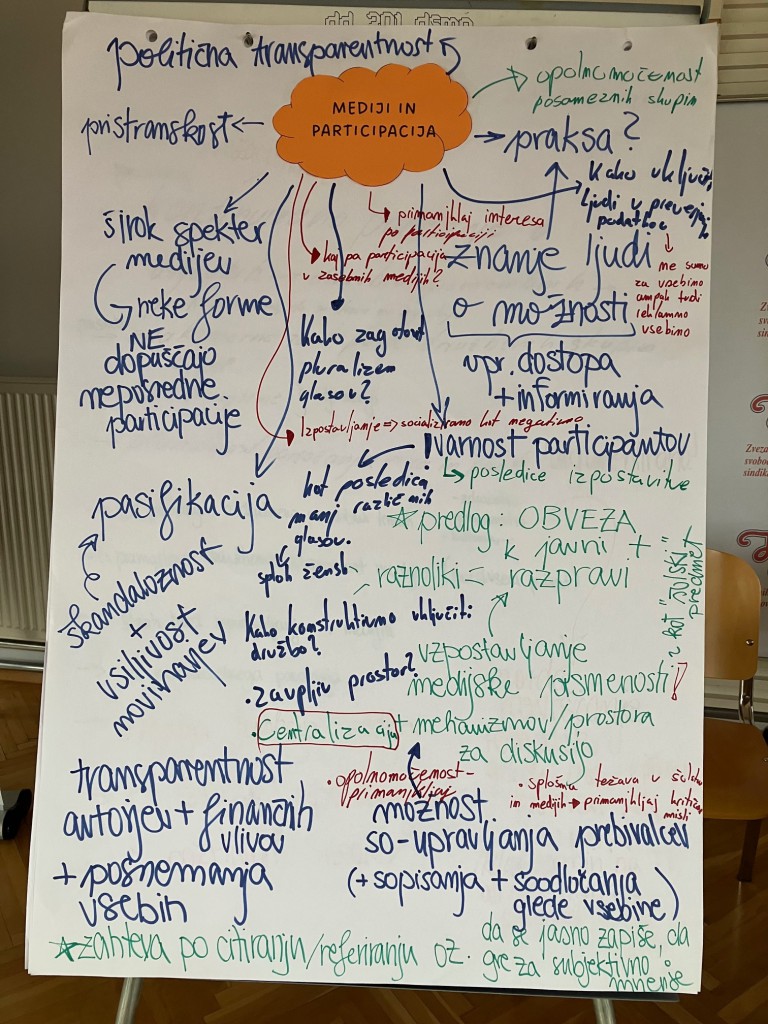 politična transparentnost
MEDIJI IN
PARTICIPACIJA
opolnomočenost
posameznih skupin
pristranskost
praksa?
Kako vključiti
ljudi v
podatkov
me samo
za vsebino
ampak tudi
reklammo
vsebino
širok spekter
medijev
neke forme
NE
dopuščajo
neposredne
participacije
primanjkljaj interesa
po participaciji
kaj pa participacija
v zasebnih medijih?
znanje ljudi
o možnosti
vpr. dostopa
+ informiranja
Kako zagotovit
pluralizem
glasov?
Izpostavljanje => socializirano kot negativno
varnost participantov
posledice izpostavitve
pasifikacija
kot posledica
manj različnih
glasov.
sploh žensk
škandaloznost
+
vsiljivost
novinarjev
predlog: OBVEZA
k javni +
raznoliki = razpravi
kot "šolski"
predmet
Kako konstruktivno vključiti
družbo?
• Zaupljiv prostor?
vzpostavljanje
medijske pismenosti!
• Centralizacija
+ mehanizmov/prostora
za diskusijo
• opolnomočenost -
primanjkljaj
• splošna težava v
in medijih → primanjkljaj kritične
misli
transparentnost
avtorjev + finančnih
vlivov
+ posnemanja
vsebin
možnost
so-upravljanja prebivalcev
(+ sopisanja + soodločanja
glede vsebine)
zahteva po citiranju/referiranju oz.
da se jasno zapiše, da
gre za subjektivno
mnenje
Zveza
svobo
sindika